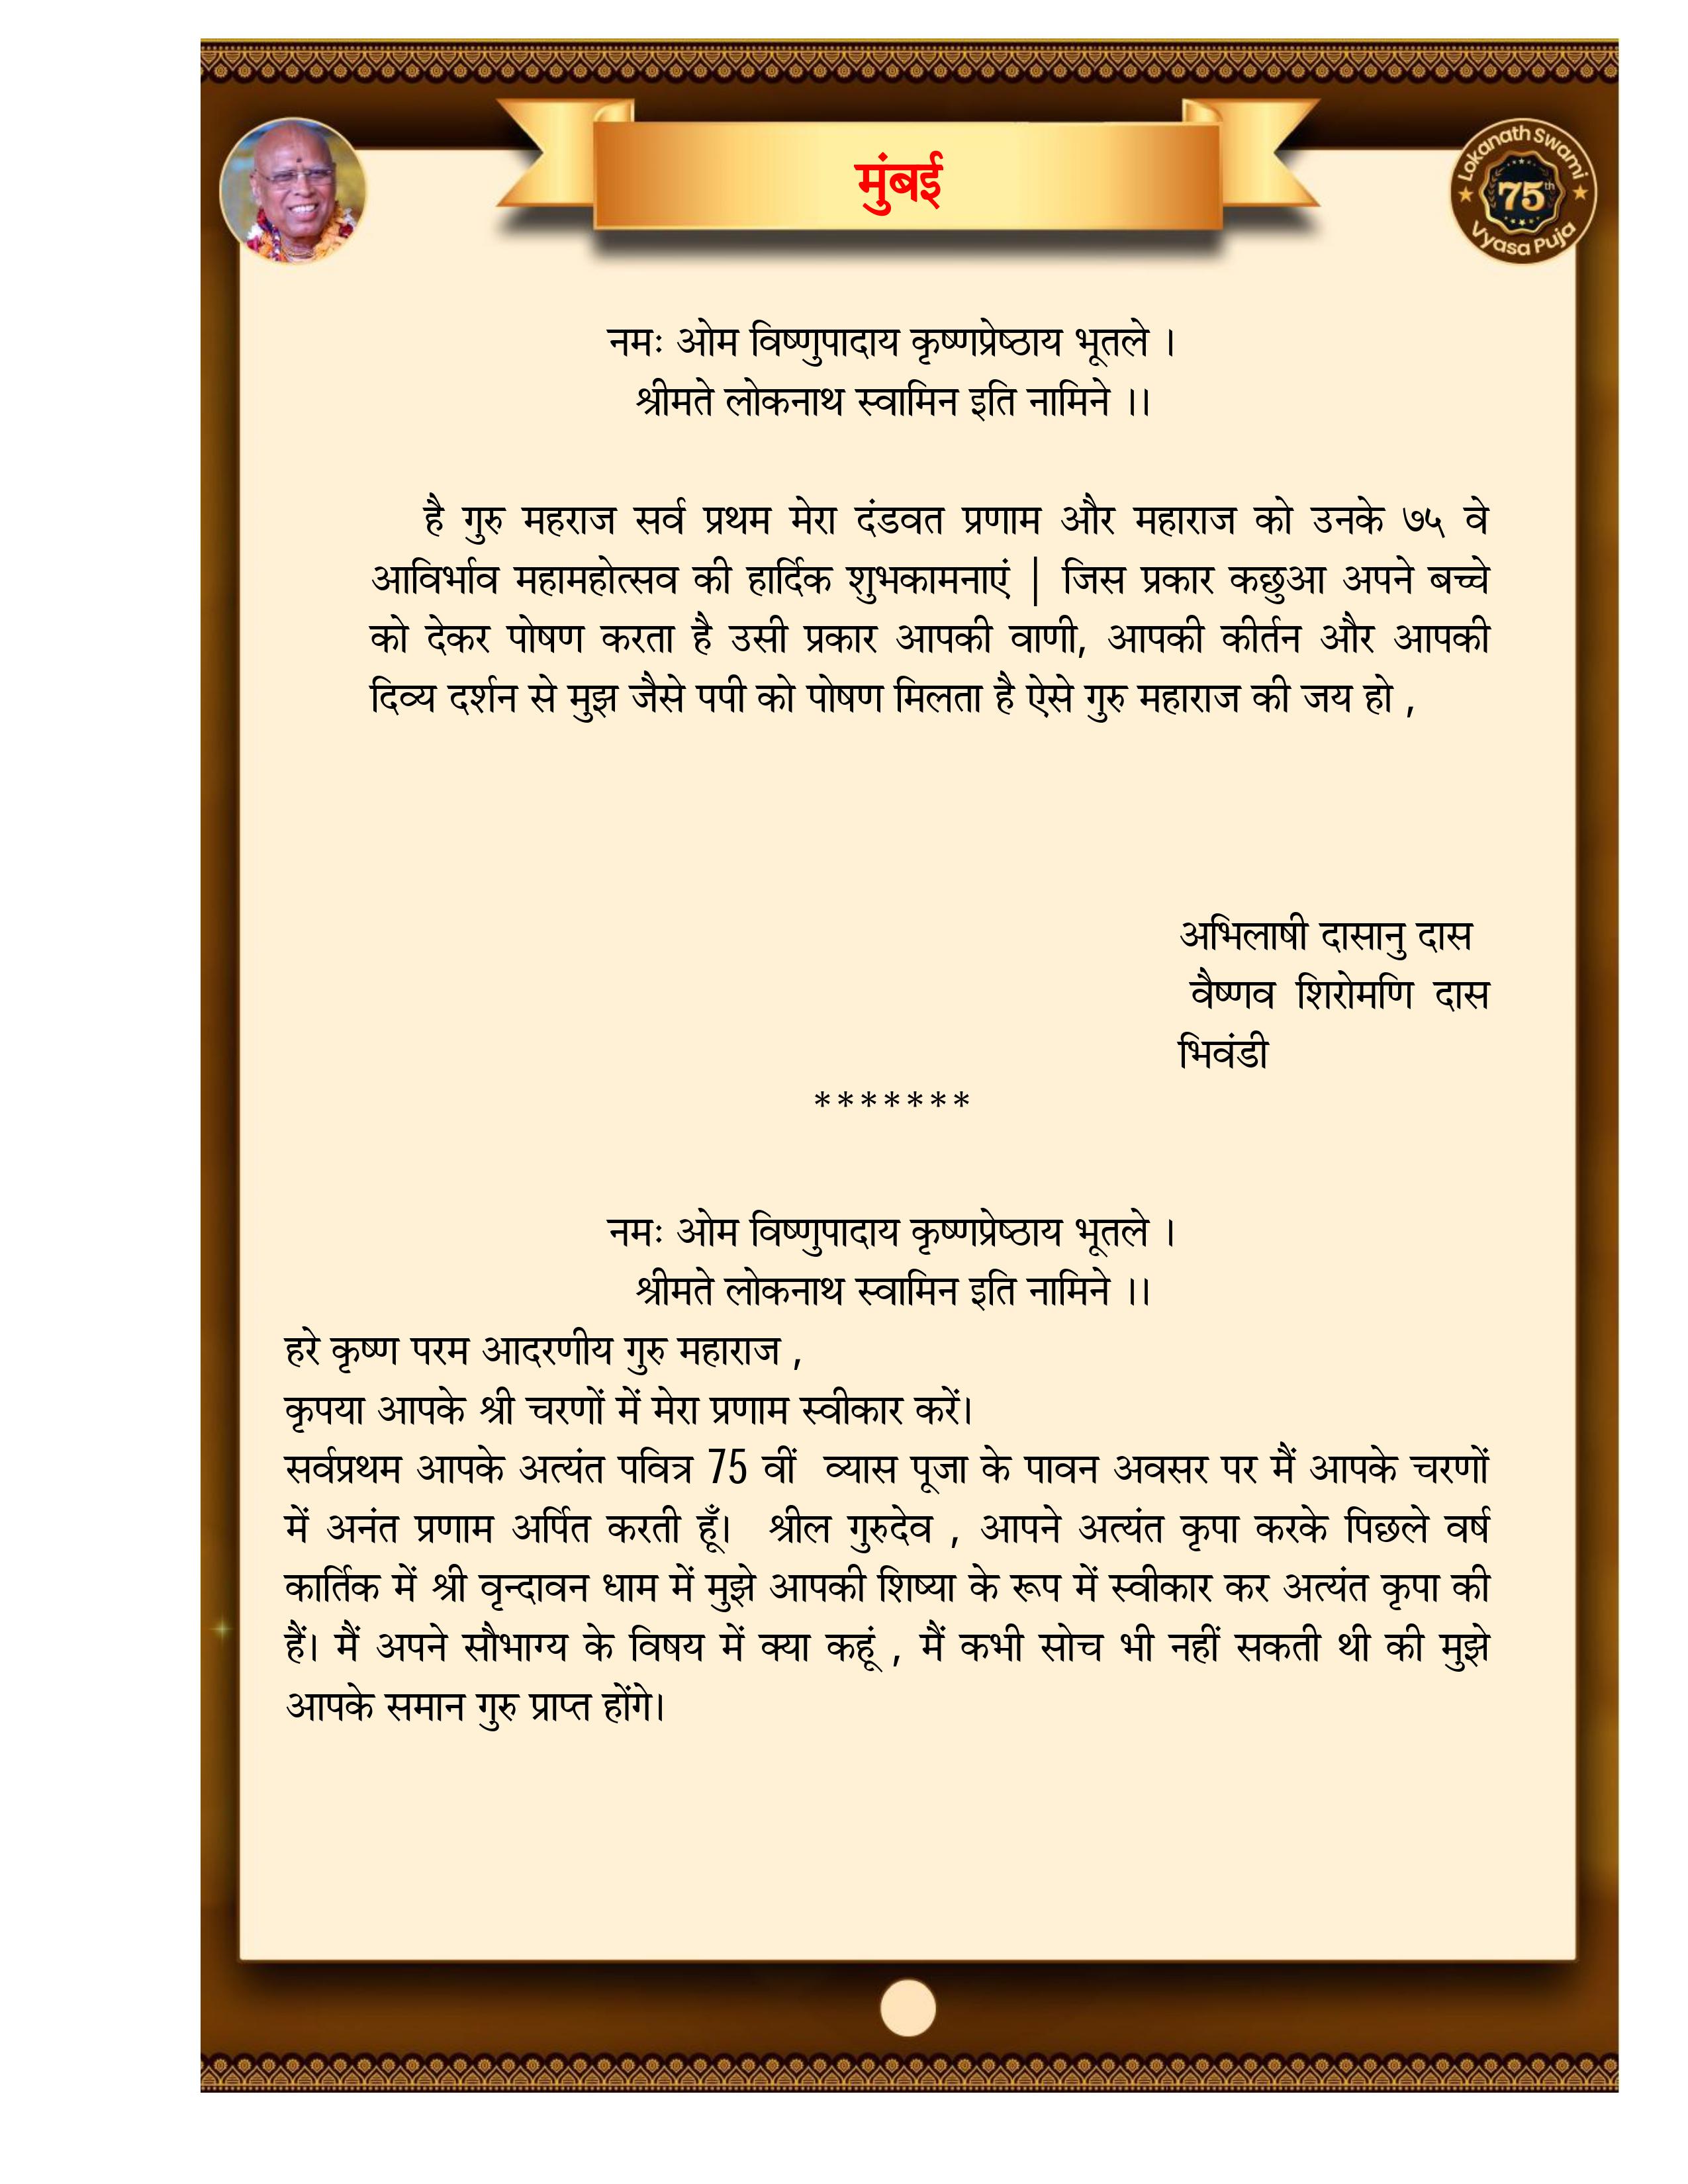 मुंबई
Lokanath Swami
75th
Vyasa Puja
नमः ओम विष्णुपादाय कृष्णप्रेष्ठाय भूतले ।
श्रीमते लोकनाथ स्वामिन इति नामिने ।।
है गुरु महराज सर्व प्रथम मेरा दंडवत प्रणाम और महाराज को उनके ७५ वे
आविर्भाव महामहोत्सव की हार्दिक शुभकामनाएं | जिस प्रकार कछुआ अपने बच्चे
को देकर पोषण करता है उसी प्रकार आपकी वाणी, आपकी कीर्तन और आपकी
दिव्य दर्शन से मुझ जैसे पपी को पोषण मिलता है ऐसे गुरु महाराज की जय हो ,
अभिलाषी दासानु दास
वैष्णव शिरोमणि दास
भिवंडी
*******
नमः ओम विष्णुपादाय कृष्णप्रेष्ठाय भूतले ।
श्रीमते लोकनाथ स्वामिन इति नामिने ।।
हरे कृष्ण परम आदरणीय गुरु महाराज ,
कृपया आपके श्री चरणों में मेरा प्रणाम स्वीकार करें।
सर्वप्रथम आपके अत्यंत पवित्र 75 वीं व्यास पूजा के पावन अवसर पर मैं आपके चरणों
में अनंत प्रणाम अर्पित करती हूँ। श्रील गुरुदेव , आपने अत्यंत कृपा करके पिछले वर्ष
कार्तिक में श्री वृन्दावन धाम में मुझे आपकी शिष्या के रूप में स्वीकार कर अत्यंत कृपा की
हैं। मैं अपने सौभाग्य के विषय में क्या कहूं , मैं कभी सोच भी नहीं सकती थी की मुझे
आपके समान गुरु प्राप्त होंगे।